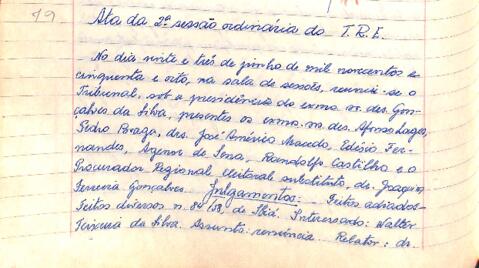 19
Ata da 2ª sessão ordinária do T.R.E.
No dia vinte e três de junho de mil novecentos e
cinquenta e oito, na sala de sessões, reuniu-se o
Tribunal, sob a presidência do exmo. sr. des. Gon-
çalves da Silva, presentes os exmos. srs. des. Afonso Lages,
Pedro Braga, drs. José Américo Macedo, Edésio Fer-
nandes, Agenor de Sena, Randolfo Castilho e o
Procurador Regional eleitoral substituto, dr. Joaquim
Ferreira Gonçalves. Julgamentos: Feitos adiados-
Feitos diversos n. 84/58, de Ibiá. Interessado: Walter
Teixeira da Silva. Assunto: renúncia. Relator: dr.